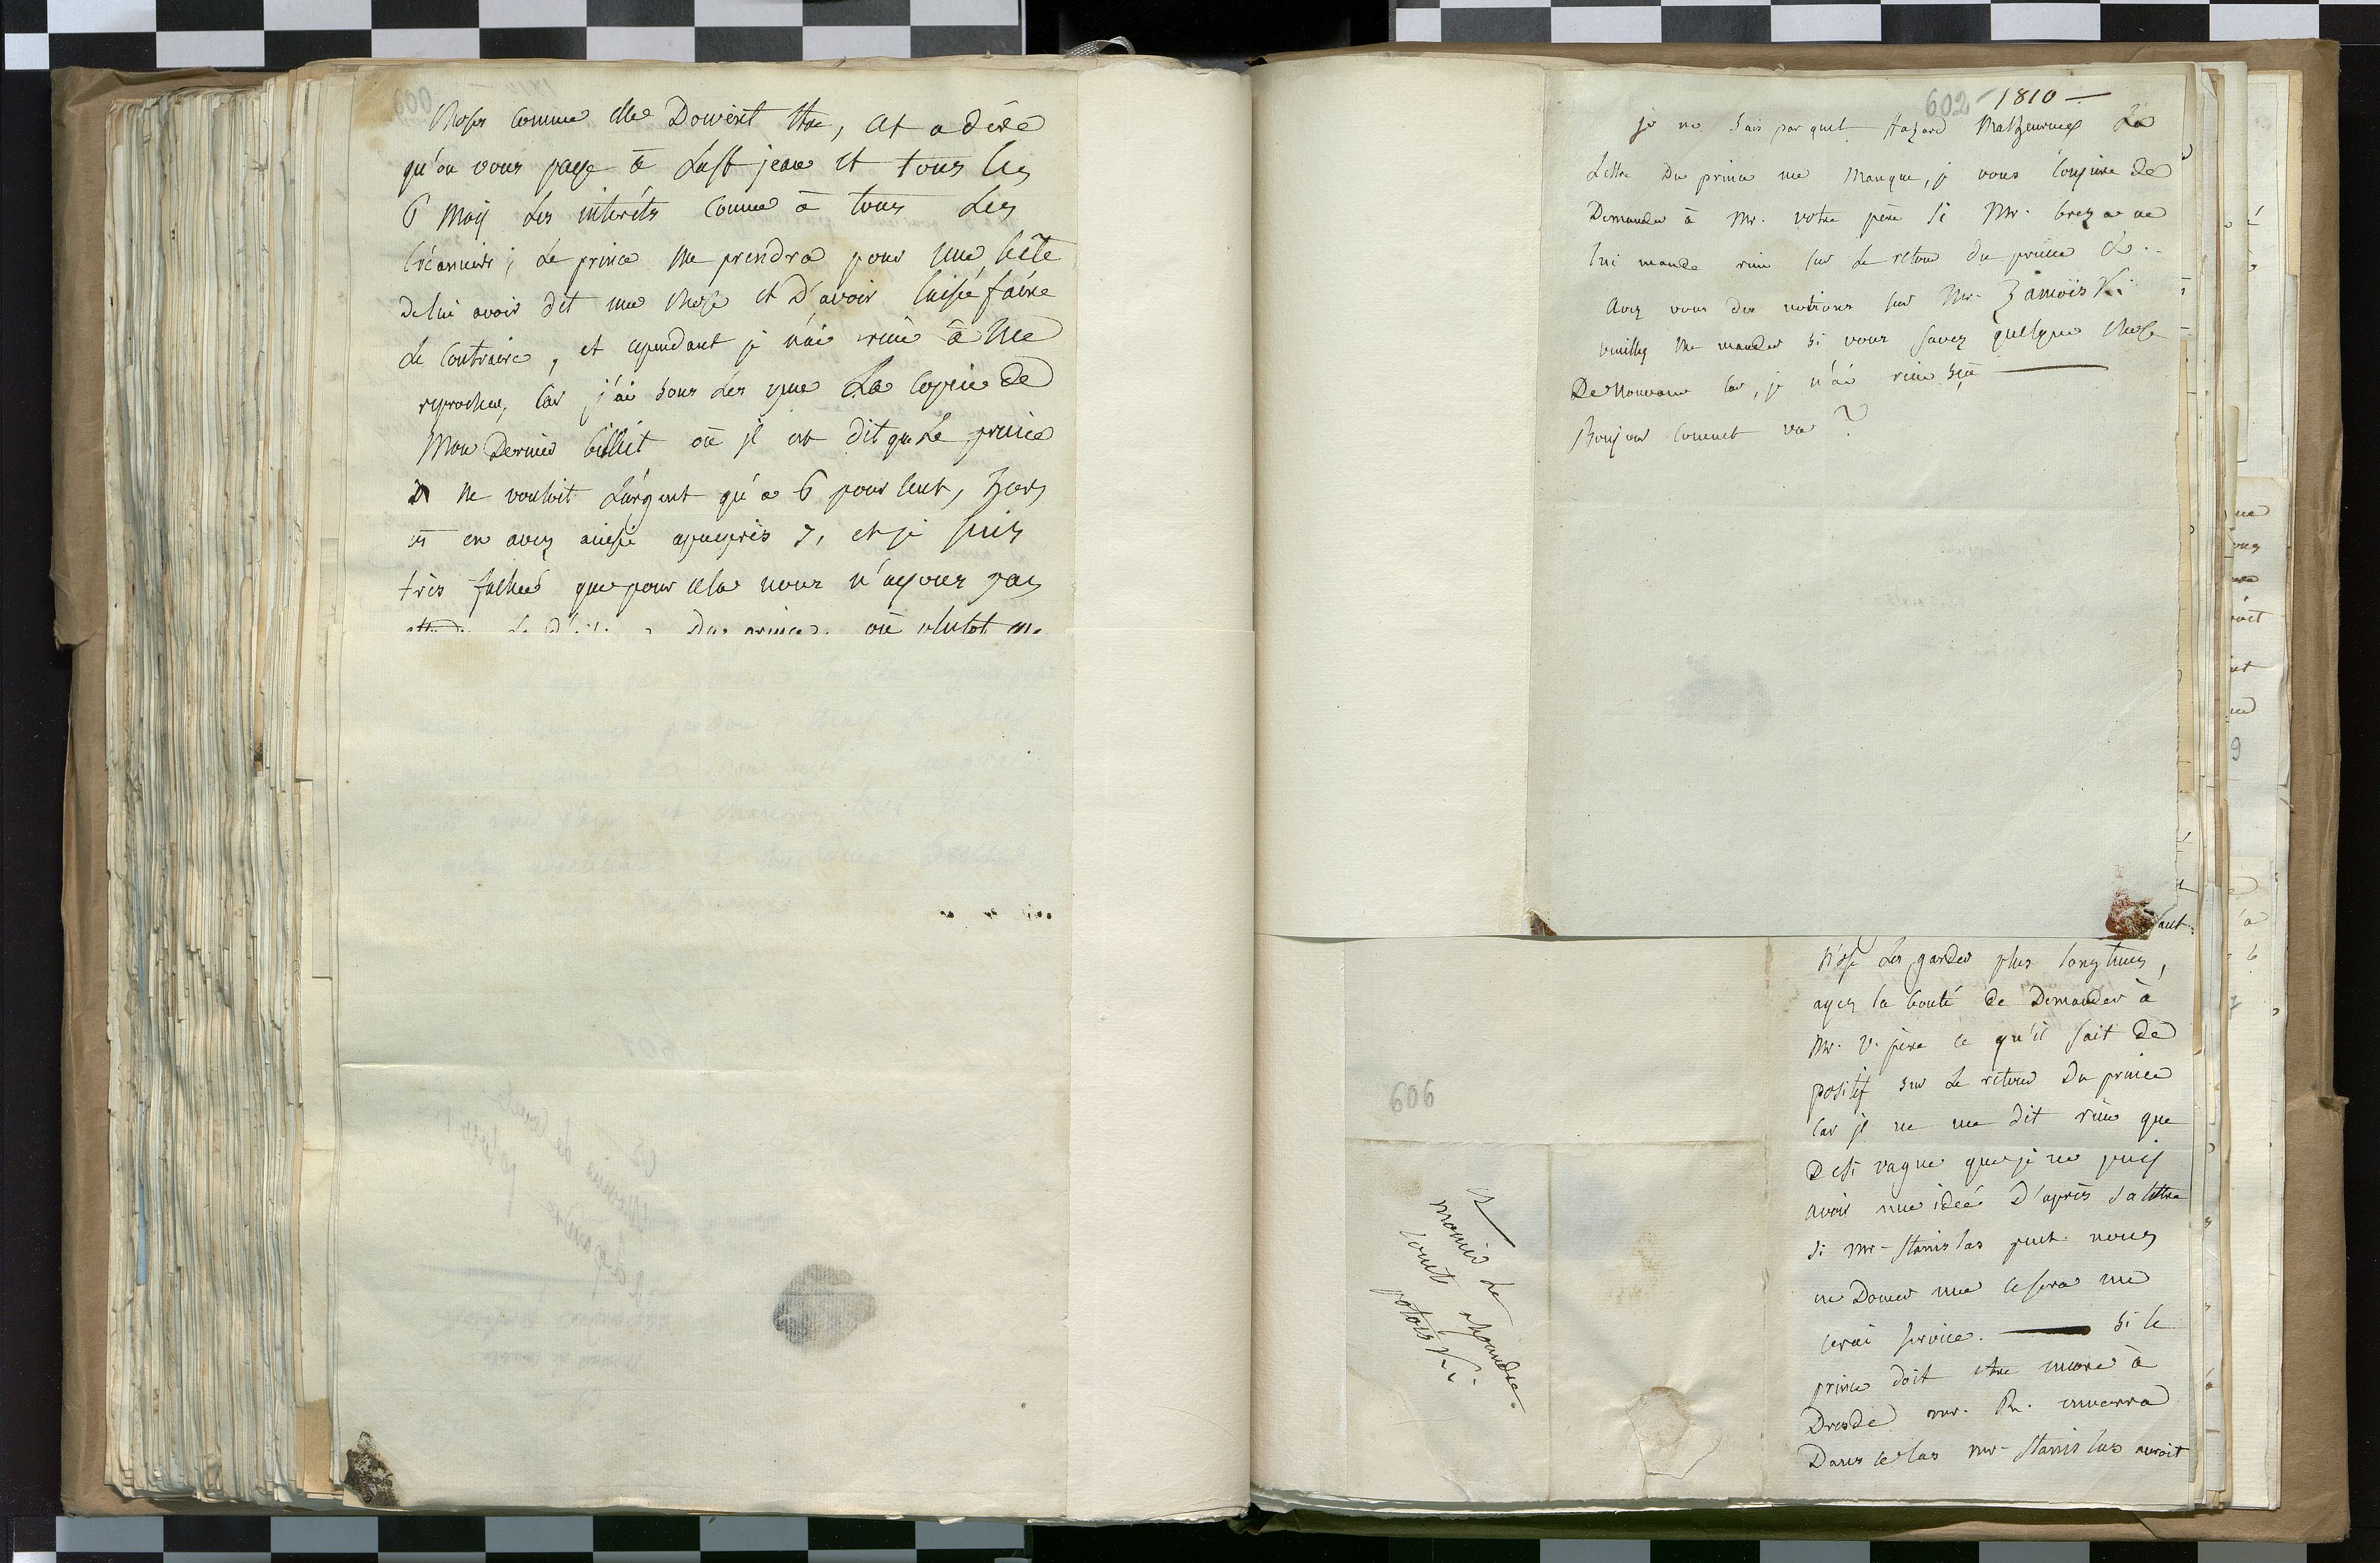 choses comme elles Doivent être, et a dire
qu'on vous paye à La St jean et tous les
6 mois Les intérêts comme à tous Les
Créanciers; Le prince me prendra pour une bête
de lui avoir dit une chose et D'avoir laissé faire
Le Contraire, et cependant je n'ai rien à me
reprocher, car j'ai sous les yeux La copie de
Mon Dernier billet où il est dit que Le prince
ne vouloit L'argent qu'a 6 pour cent, hors
en avez ainsi apeuprès 7, et je suis
très faché que pour cela nous n'ayons pas
Du prince, où plutot
602 1810 —
je ne sais par quel Hazard Malheureux La
Lettre Du prince me Manque, je vous conjure de
Demander à Mr. votre père si Mr. brez a ne
lui mande rien sur Le retour du prince &.
Avez vous des notions sur Mr. Zamoiski
veuillez me mander si vous savez quelque chose
De nouveau car, je n'ai rien sçu —
Bonjour coment va ?
n'ose Les garder plus longtems,
ayez la bonté de Demander à
Mr. V. père ce qu'il sait de
positif sur Le retour Du prince
car il ne me dit rien que
De si vague que je ne puis
avoir une idée D'après sa lettre
si Mr. Stanislas peut nous
en Doner une ce sera un
vrai service. — si le
prince doit etre encore à
Dresde mr. R. enverra
Dans ce cas mr. Stanislas auroit
606
A
monsieur Le
Comte Alexandre
potocki.